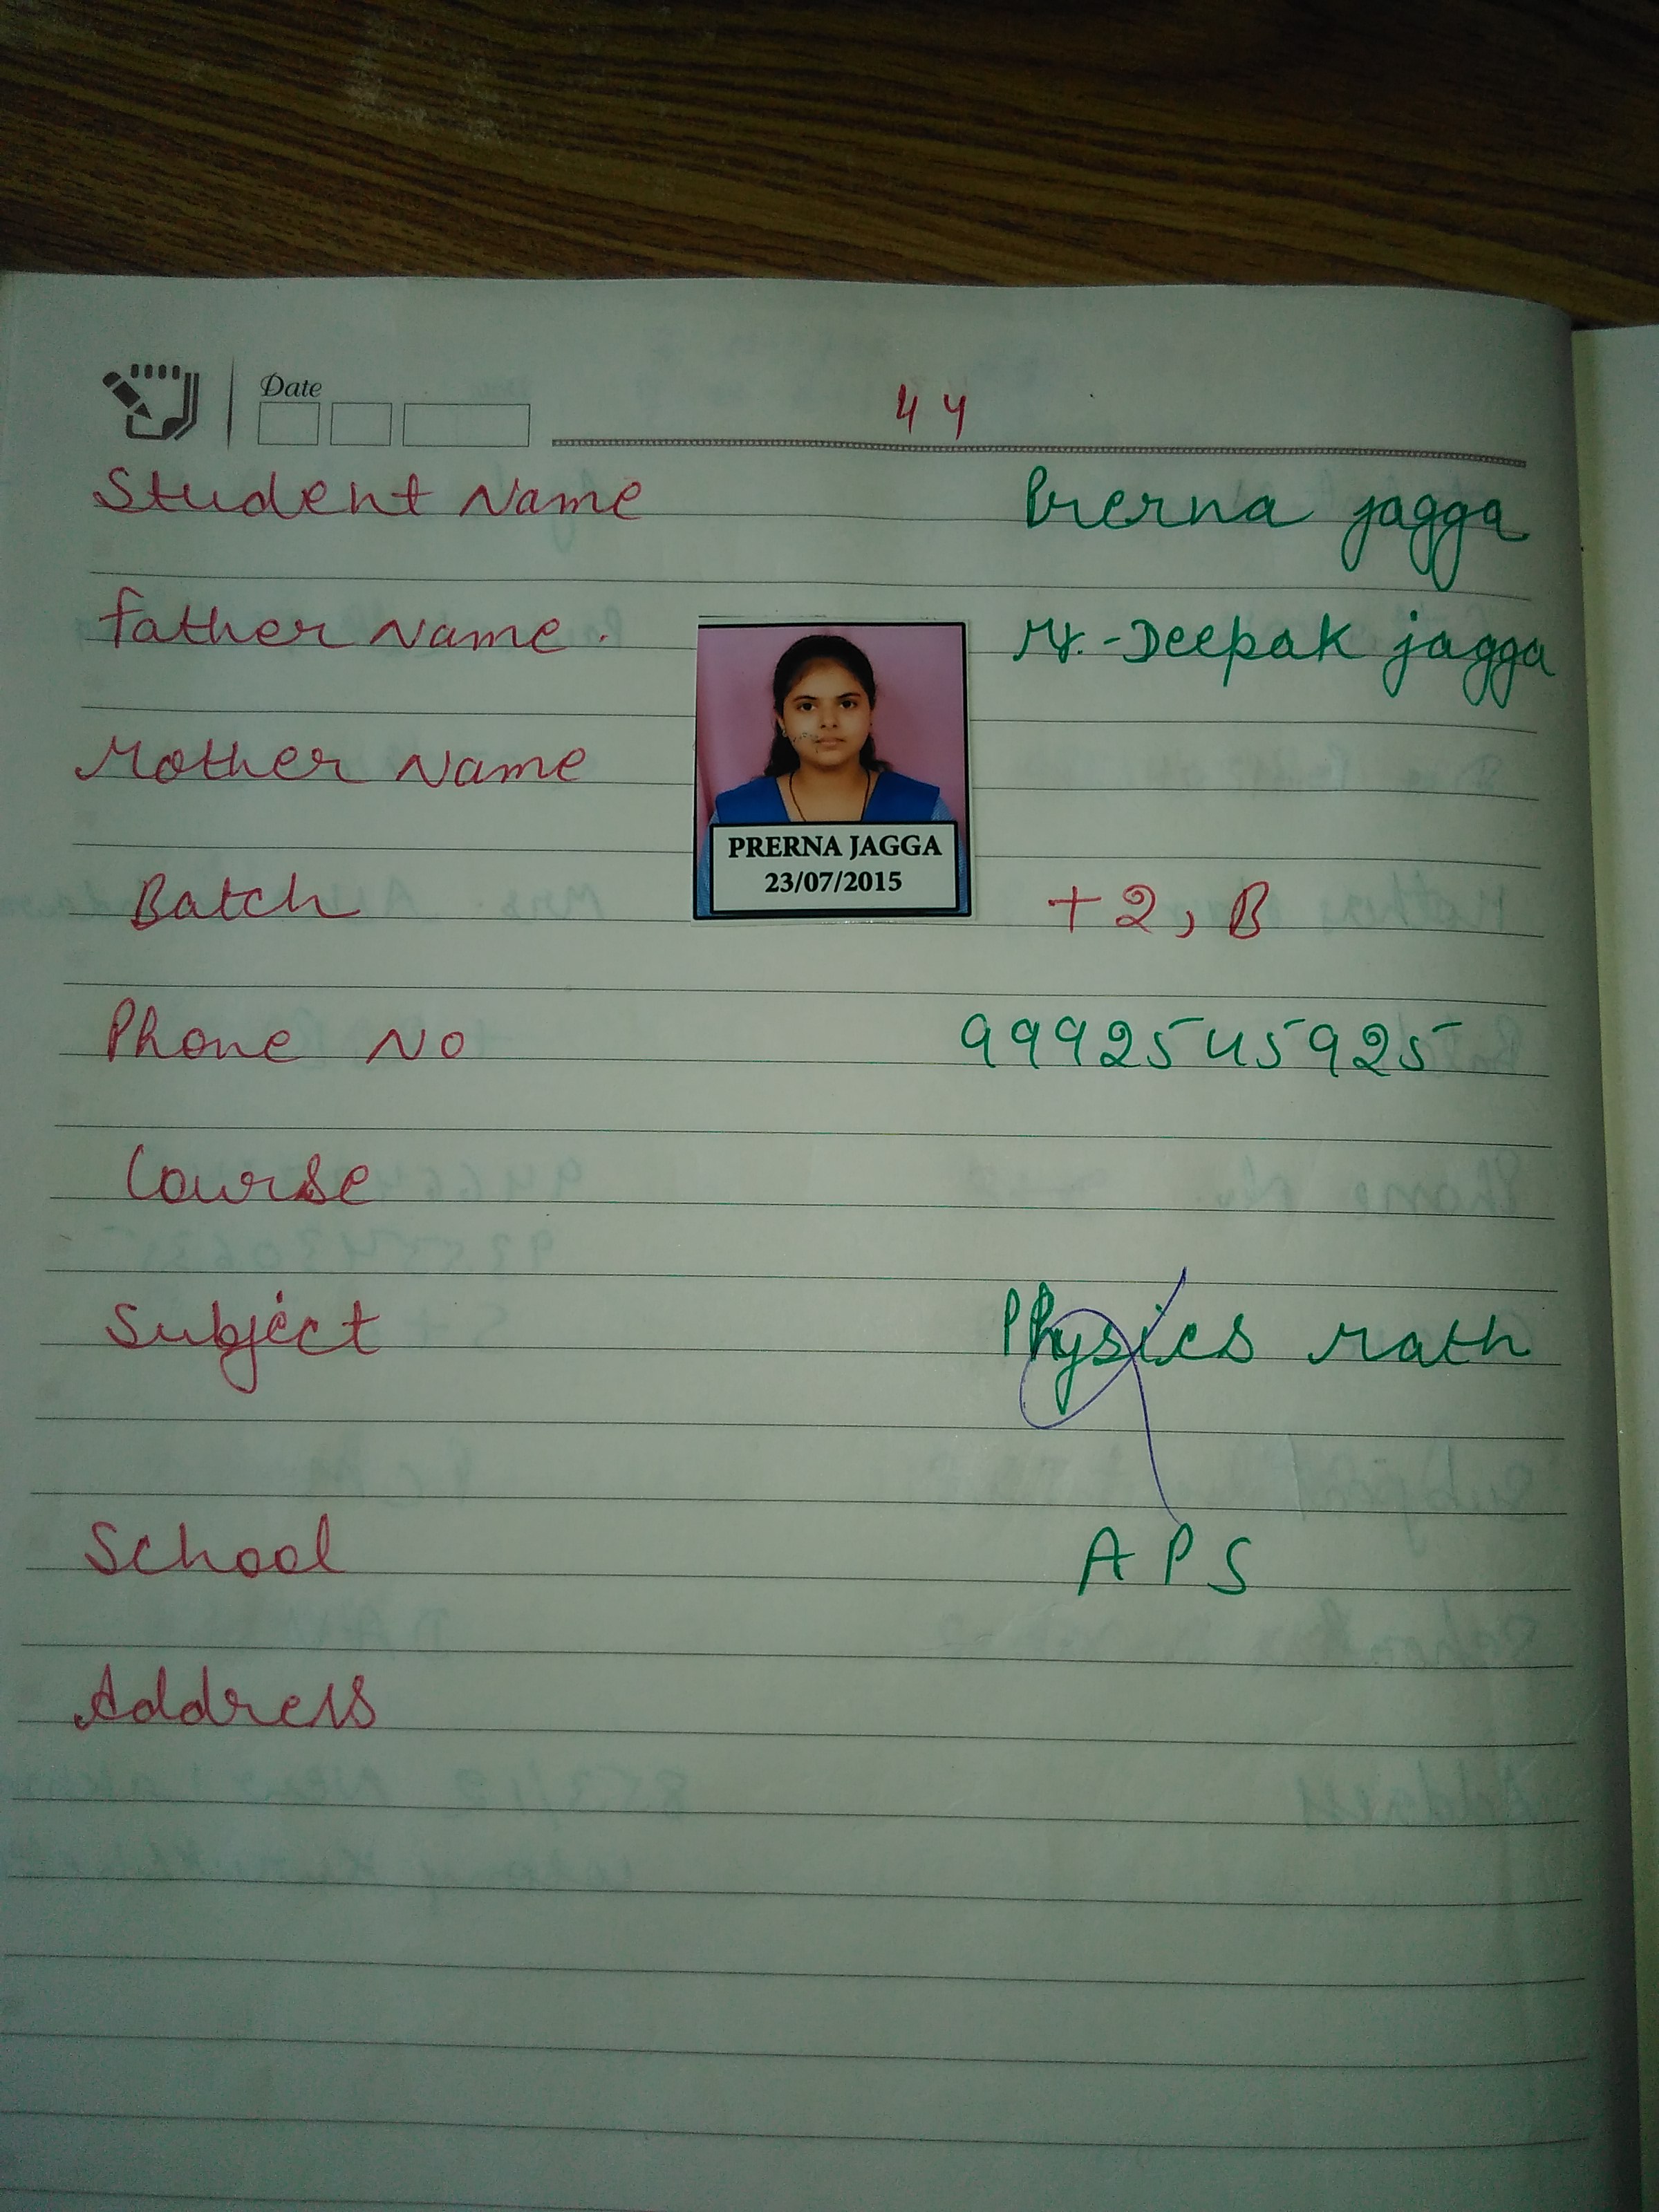 Date
44
Student Name Prerna jagga
Father Name. Mr.-Deepak jagga
Mother Name
PRERNA JAGGA
23/07/2015
Batch +2, B
Phone No 9992545925
Course
Subject Physics Math
School APS
Address